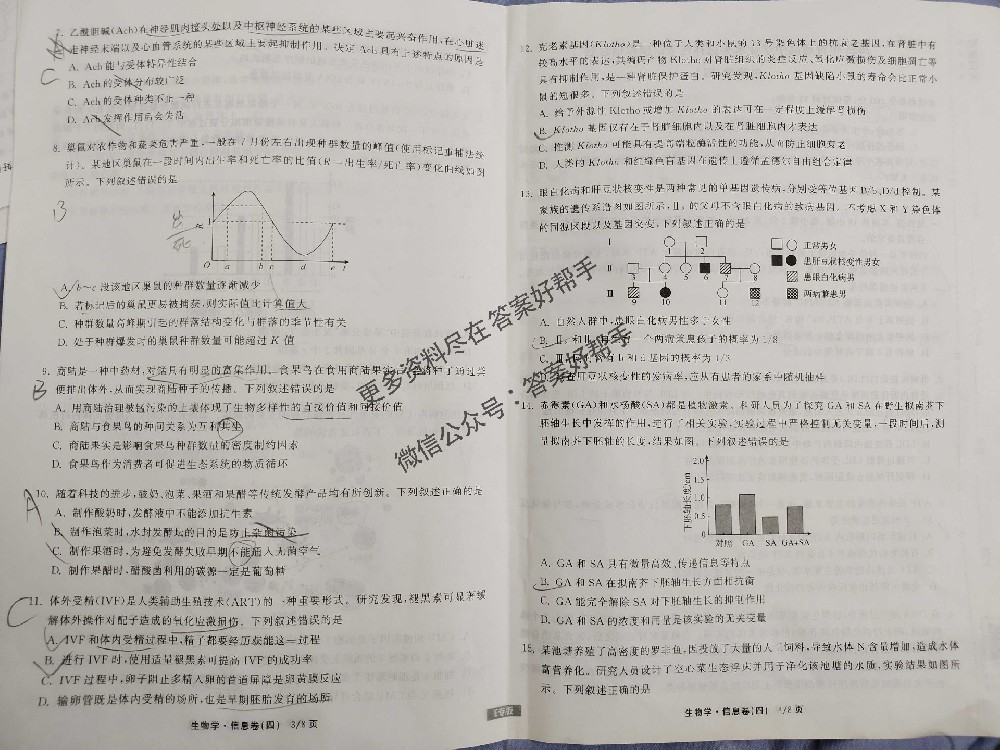 7. 乙酰胆碱(Ach)在神经肌肉接头处以及中枢神经系统的某些区域主要起兴奋作用,在心脏迷
走神经末端以及心血管系统的某些区域主要起抑制作用。决定 Ach 具有上述特点的原因是
A. Ach 能与受体特异性结合
B. Ach 的受体分布较广泛
C. Ach 的受体种类不止一种
D. Ach 发挥作用后会失活
C
8. 巢鼠对农作物和蔬菜危害严重,一般在 7 月份左右出现种群数量的峰值(使用标记重捕法统
计)。某地区巢鼠在一段时间内出生率和死亡率的比值(R=出生率/死亡率)变化曲线如图
所示。下列叙述错误的是
B
出
死
R
1
O a b c d e t
A. b~c 段该地区巢鼠的种群数量逐渐减少
B. 若标记后的巢鼠更易被捕获,则实际值比计算值大
C. 种群数量高峰期引起的群落结构变化与群落的季节性有关
D. 处于种群爆发时的巢鼠种群数量可能超过 K 值
9. 商陆是一种中药材,对锰具有明显的富集作用。食果鸟在食用商陆果实
便排出体外,从而实现商陆种子的传播。下列叙述错误的是
B
A. 用商陆治理被锰污染的土壤体现了生物多样性的直接价值和间接价值
B. 商陆与食果鸟的种间关系为互利共生
C. 商陆果实是影响食果鸟种群数量的密度制约因素
D. 食果鸟作为消费者可促进生态系统的物质循环
10. 随着科技的进步,酸奶、泡菜、果酒和果醋等传统发酵产品均有所创新。下列叙述正确的是
A
A. 制作酸奶时,发酵液中不能添加抗生素
B. 制作泡菜时,水封发酵坛的目的是防止杂菌污染
C. 制作果酒时,为避免发酵失败早期不能通入无菌空气
D. 制作果醋时,醋酸菌利用的碳源一定是葡萄糖
11. 体外受精(IVF)是人类辅助生殖技术(ART)的一种重要形式。研究发现,褪黑素可显著缓
解体外操作对配子造成的氧化应激损伤。下列叙述错误的是
C
A. IVF 和体内受精过程中,精子都要经历获能这一过程
B. 进行 IVF 时,使用适量褪黑素可提高 IVF 的成功率
C. IVF 过程中,卵子阻止多精入卵的首道屏障是卵黄膜反应
D. 输卵管既是体内受精的场所,也是早期胚胎发育的场所
生物学·信息卷(四) 3/8 页
12. 克老素基因(Klotho)是一种位于人类和小鼠的 13 号染色体上的抗衰老基因,在肾脏中有
较高水平的表达,其编码产物 Klotho 对肾脏组织的炎症反应、氧化应激损伤及细胞凋亡等
具有抑制作用,是一种肾脏保护蛋白。研究发现,Klotho 基因缺陷小鼠的寿命会比正常小
鼠的短很多。下列叙述错误的是
A. 给予外源性 Klotho 或增加 Klotho 的表达可在一定程度上减轻肾损伤
B. Klotho 基因仅存在于肾脏细胞内以及在肾脏细胞内才表达
C. 推测 Klotho 可能具有提高端粒酶活性的功能,从而防止细胞衰老
D. 人类的 Klotho 和红绿色盲基因在遗传上遵循孟德尔自由组合定律
13. 眼白化病和肝豆状核变性是两种常见的单基因遗传病,分别受等位基因 B/b、D/d 控制。某
家族的遗传系谱图如图所示,Ⅱ₃ 的父母不含眼白化病的致病基因。不考虑 X 和 Y 染色体
的同源区段以及基因突变,下列叙述正确的是
Ⅰ 1 2
Ⅱ 3 4 5 6 7 8
Ⅲ 9 10 11 12
正常男女
患肝豆状核变性男女
患眼白化病男
两病兼患男
A. 自然人群中,患眼白化病男性多于女性
一个两病兼患孩子的概率为 1/8
基因的概率为 1/3
肝豆状核变性的发病率,应从有患者的家系中随机抽样
14. 赤霉素(GA)和水杨酸(SA)都是植物激素。科研人员为了探究 GA 和 SA 在野生拟南芥下
胚轴生长中发挥的作用,进行了相关实验,实验过程中严格控制无关变量,一段时间后,测
量拟南芥下胚轴的长度,结果如图。下列叙述错误的是
下胚轴长度/cm
2.0
1.5
1.0
0.5
0
对照 GA SA GA+SA
A. GA 和 SA 具有微量高效、传递信息等特点
B. GA 和 SA 在拟南芥下胚轴生长方面相抗衡
C. GA 能完全解除 SA 对下胚轴生长的抑制作用
D. GA 和 SA 的浓度和用量是该实验的无关变量
15. 某池塘养殖了高密度的罗非鱼,因投放了大量的人工饲料,导致水体 N 含量增加,造成水体
富营养化。研究人员设计了空心菜生态浮床并用于净化该池塘的水质,实验结果如图所
示。下列叙述正确的是
生物学·信息卷(四) 4/8 页
更多资料尽在答案好帮手
微信公众号:答案好帮手